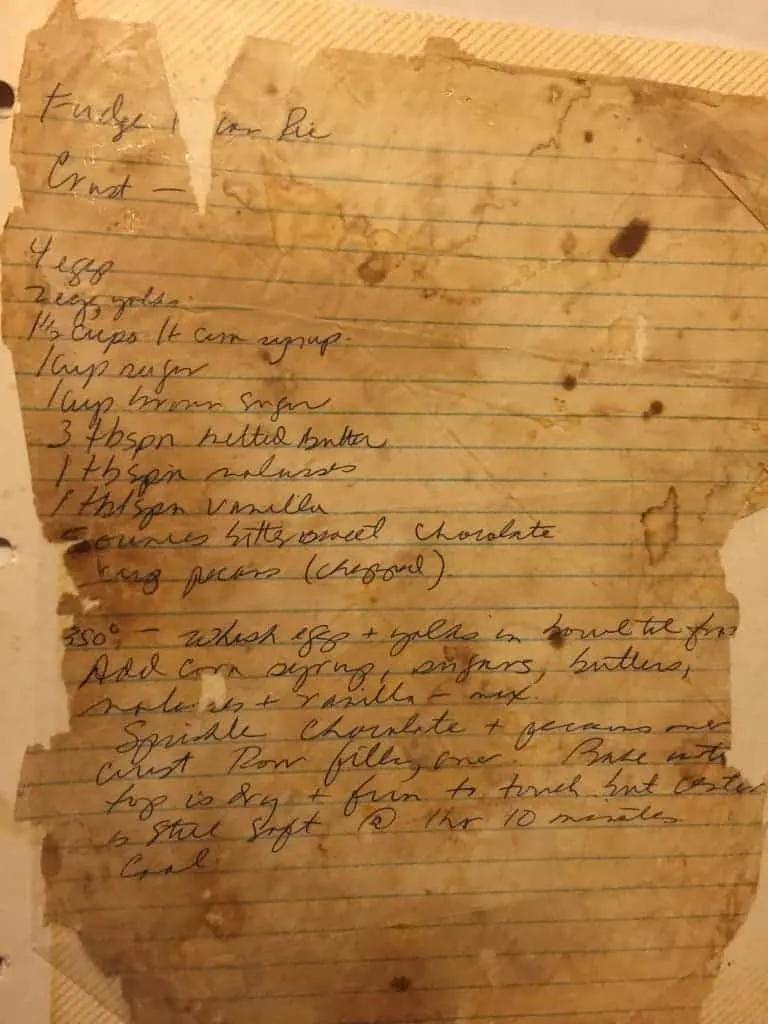 Fudge can Pie
Crust —
4 eggs
2 egg yolks
1 1/2 cups lt corn syrup.
1 cup sugar
1 cup brown sugar
3 tbspn melted butter
1 tbspn molasses
1 tblspn vanilla
ounces bittersweet chocolate
pecans (chopped).
350° — Whisk egg + yolks in bowl til
Add corn syrup, sugars, butters,
+ vanilla – mix.
Sprinkle chocolate + pecans over
crust Pour filling over. Bake until
top is dry + firm to touch but center
is still soft @ 1hr 10 minutes
Cool.